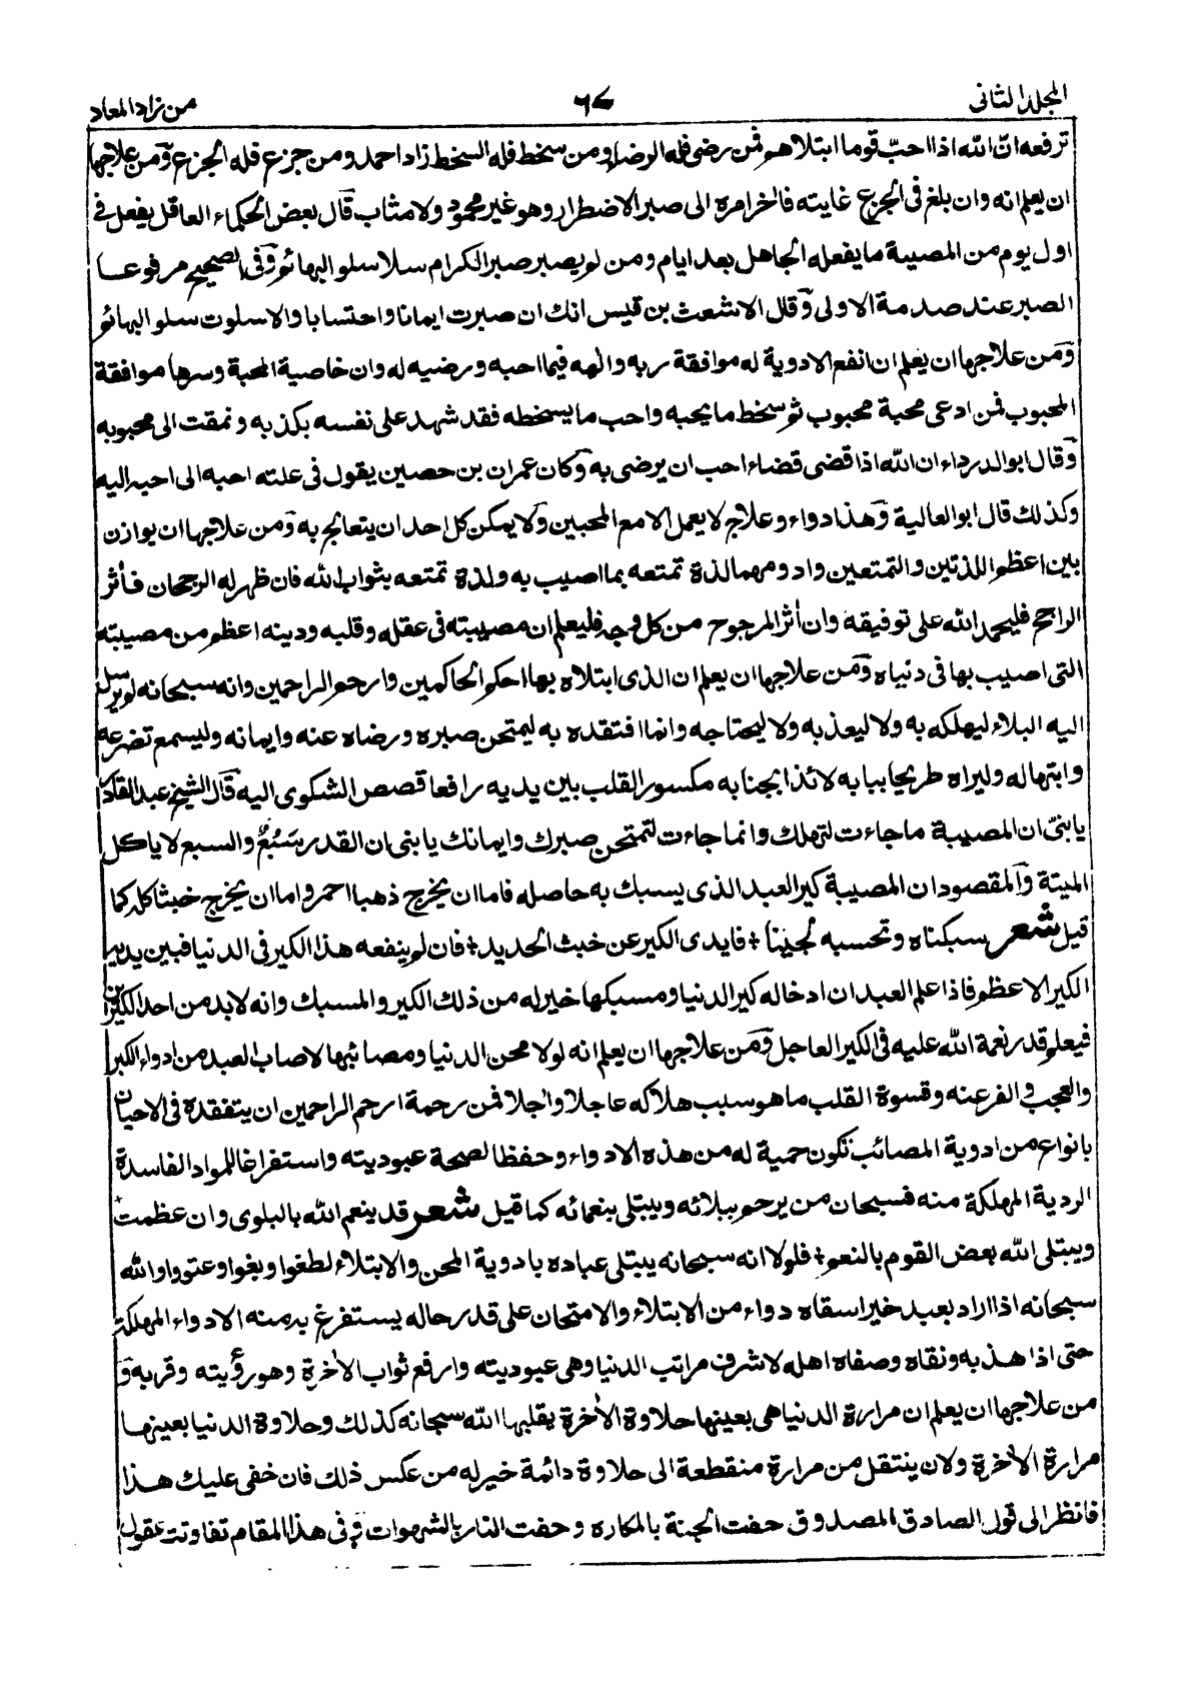 المجلد الثانى ٦٧ من زاد المعاد
ترفعه ان الله اذا احبّ قوما ابتلاهم فمن رضى فله الرضاء ومن سخط فله السخط زاد احمد ومن جزع فله الجزع ومن علاجها
ان يعلم انه وان بلغ فى الجزع غايته فاٰخر امره الى صبر الاضطرار وهو غير محمود ولا مثاب قال بعض الحكماء العاقل يفعل فى
اول يوم من المصيبة ما يفعله الجاهل بعد ايام ومن لم يصبر صبر الكرام سلا سلو البهائم وفى الصحيح مرفوعا
الصبر عند صدمة الاولى وقال الاشعث بن قيس انك ان صبرت ايمانا واحتسابا والا سلوت سلو البهائم
ومن علاجها ان يعلم ان انفع الادوية له موافقة ربه والهه فيما احبه ورضيه له وان خاصية المحبة وسرها موافقة
المحبوب فمن ادعى محبة محبوب ثم سخط ما يحبه واحب ما يسخطه فقد شهد على نفسه بكذبه وتمقت الى محبوبه
وقال ابو الدرداء ان الله اذا قضى قضاء احب ان يرضى به وكان عمران بن حصين يقول فى علته احبه الى احبه اليه
وكذلك قال ابو العالية وهذا دواء وعلاج لا يعمل الا مع المحبين ولا يمكن كل احد ان يتعالج به ومن علاجها ان يوازن
بين اعظم اللذتين والتمتعين وادومهما لذة تمتعه بما اصيب به ولذة تمتعه بثواب الله فان ظهر له الرجحان فاٰثر
الراجح فليحمد الله على توفيقه وان اٰثر المرجوح من كل وجه فليعلم ان مصيبته فى عقله وقلبه ودينه اعظم من مصيبته
التى اصيب بها فى دنياه ومن علاجها ان يعلم ان الذى ابتلاه بها احكم الحاكمين وارحم الراحمين وانه سبحانه لم يرسل
اليه البلاء ليهلكه به ولا ليعذبه ولا ليحتاجه وانما افتقده به ليمتحن صبره ورضاه عنه وايمانه وليسمع تضرعه
وابتهاله وليراه طريحا ببابه لائذا بجنابه مكسور القلب بين يديه رافعا قصص الشكوى اليه قال الشيخ عبد القادر
يا بنىّ ان المصيبة ما جاءت لتهلك وانما جاءت لتمتحن صبرك وايمانك يا بنى ان القدر سَبُعٌ والسبع لا ياكل
الميتة والمقصود ان المصيبة كير العبد الذى يسبك به حاصله فاما ان يخرج ذهبا احمر واما ان يخرج خبثا كله كما
قيل شعر سبكناه وتحسبه لجينا + فابدى الكير عن خبث الحديد + فان لم ينفعه هذا الكير فى الدنيا فبين يديه
الكير الاعظم فاذا علم العبد ان ادخاله كير الدنيا ومسبكها خير له من ذلك الكير والمسبك وانه لابد من احد الكيرين
فيعلم قدر نعمة الله عليه فى الكير العاجل ومن علاجها ان يعلم انه لولا محن الدنيا ومصائبها لاصاب العبد من ادواء الكبر
والعجب والفرعنه وقسوة القلب ما هو سبب هلاكه عاجلا واٰجلا فمن رحمة ارحم الراحمين ان يتفقده فى الاحيان
بانواع من ادوية المصائب تكون حمية له من هذه الادواء وحفظا لصحة عبوديته واستفراغا للمواد الفاسدة
الردية المهلكة منه فسبحان من يرحم ببلائه ويبتلى بنعمائه كما قيل شعر قد ينعم الله بالبلوى وان عظمت +
ويبتلى الله بعض القوم بالنعم + فلولا انه سبحانه يبتلى عباده بادوية المحن والابتلاء لطغوا وبغوا وعتوا والله
سبحانه اذا اراد بعبد خيرا سقاه دواء من الابتلاء والامتحان على قدر حاله يستفرغ به منه الادواء المهلكة
حتى اذا هذبه ونقاه وصفاه اهله لاشرف مراتب الدنيا وهى عبوديته وارفع ثواب الاٰخرة وهو رؤيته وقربه و
من علاجها ان يعلم ان مرارة الدنيا هى بعينها حلاوة الاٰخرة يقلبها الله سبحانه كذلك وحلاوة الدنيا بعينها
مرارة الاٰخرة ولان ينتقل من مرارة منقطعة الى حلاوة دائمة خير له من عكس ذلك فان خفى عليك هذا
فانظر الى قول الصادق المصدوق حفت الجنة بالمكاره وحفت النار بالشهوات وفى هذا المقام تفاوتت عقول